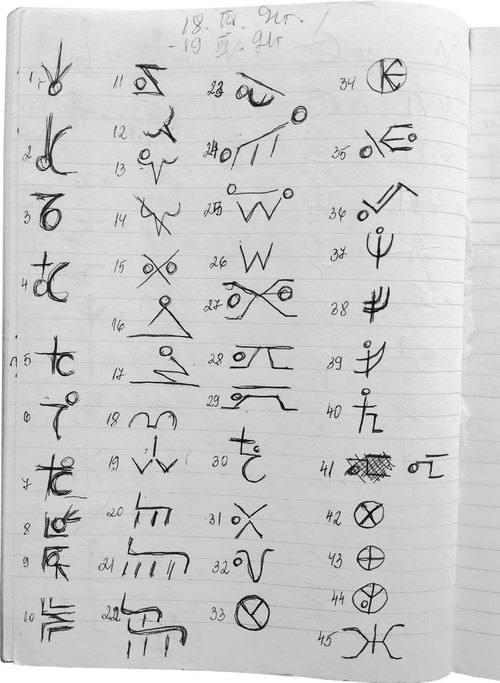 18. III.
- 19 III.
1
2
3
4
? 5
6
7
8
9
10
11
12
13
14
15
16
17
18
19
20
21
22
23
24
25
26
27
28
29
30
31
32
33
34
35
36
37
38
39
40
41
42
43
44
45